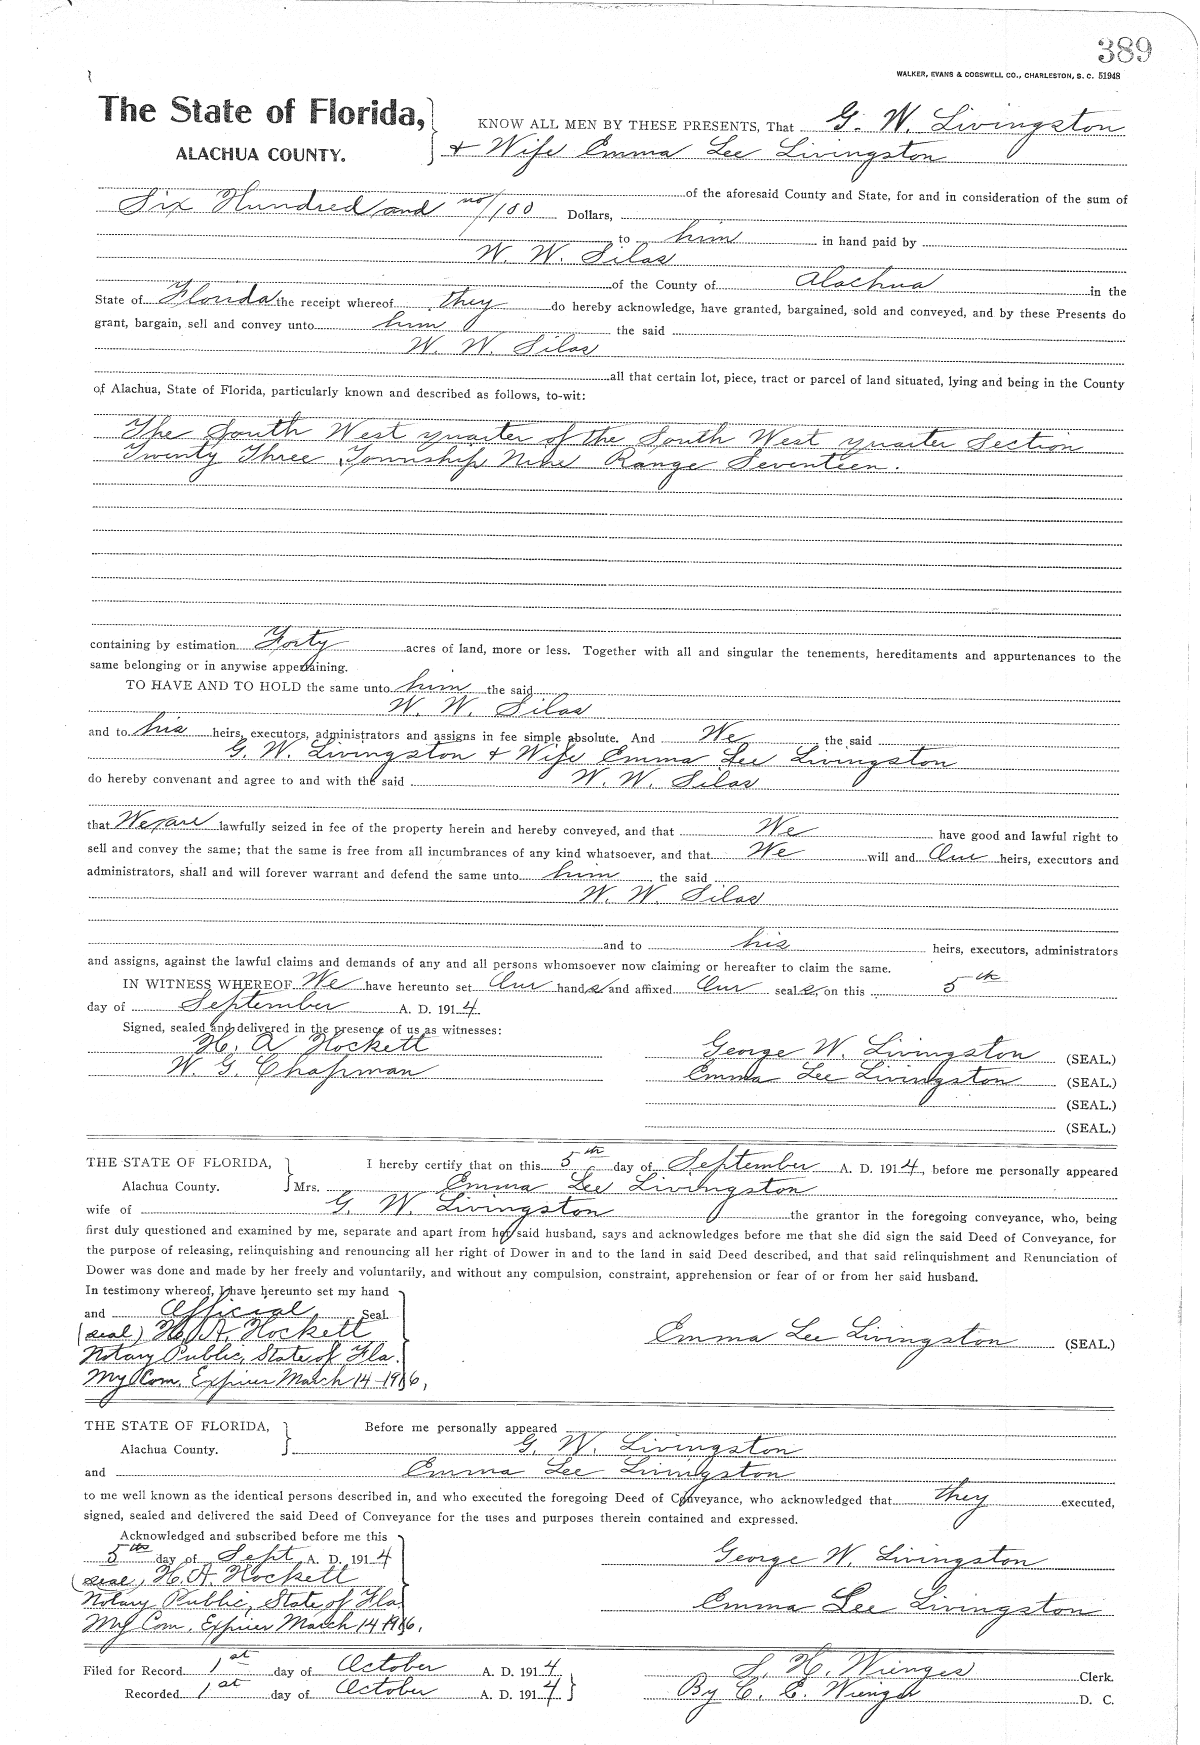 389
WALKER, EVANS & COGSWELL CO., CHARLESTON, S. C. 51948
The State of Florida,
ALACHUA COUNTY.
KNOW ALL MEN BY THESE PRESENTS, That G. W. Livingston
& Wife Emma Lee Livingston
of the aforesaid County and State, for and in consideration of the sum of
Six Hundred and no/100 Dollars,
to him in hand paid by
W. W. Silas
of the County of Alachua in the
State of Florida the receipt whereof they do hereby acknowledge, have granted, bargained, sold and conveyed, and by these Presents do
grant, bargain, sell and convey unto him the said
W. W. Silas
all that certain lot, piece, tract or parcel of land situated, lying and being in the County
of Alachua, State of Florida, particularly known and described as follows, to-wit:
The South West quarter of the South West quarter Section
Twenty Three Township Nine Range Seventeen.
containing by estimation Forty acres of land, more or less. Together with all and singular the tenements, hereditaments and appurtenances to the
same belonging or in anywise appertaining.
TO HAVE AND TO HOLD the same unto him the said
W. W. Silas
and to his heirs, executors, administrators and assigns in fee simple absolute. And We the said
G. W. Livingston & Wife Emma Lee Livingston
do hereby convenant and agree to and with the said W. W. Silas
that We are lawfully seized in fee of the property herein and hereby conveyed, and that We have good and lawful right to
sell and convey the same; that the same is free from all incumbrances of any kind whatsoever, and that We will and Our heirs, executors and
administrators, shall and will forever warrant and defend the same unto him the said
W. W. Silas
and to his heirs, executors, administrators
and assigns, against the lawful claims and demands of any and all persons whomsoever now claiming or hereafter to claim the same.
IN WITNESS WHEREOF We have hereunto set Our hands and affixed Our seals, on this 5th
day of September A. D. 1914.
Signed, sealed and delivered in the presence of us as witnesses:
H. A Hockett
W. G. Chapman
George W. Livingston (SEAL.)
Emma Lee Livingston (SEAL.)
(SEAL.)
(SEAL.)
THE STATE OF FLORIDA,
Alachua County.
I hereby certify that on this 5th day of September A. D. 1914, before me personally appeared
Mrs. Emma Lee Livingston
wife of G. W. Livingston the grantor in the foregoing conveyance, who, being
first duly questioned and examined by me, separate and apart from her said husband, says and acknowledges before me that she did sign the said Deed of Conveyance, for
the purpose of releasing, relinquishing and renouncing all her right of Dower in and to the land in said Deed described, and that said relinquishment and Renunciation of
Dower was done and made by her freely and voluntarily, and without any compulsion, constraint, apprehension or fear of or from her said husband.
In testimony whereof, I have hereunto set my hand
and Official Seal
(seal) H. A. Hockett
Notary Public, State of Fla.
My Com. Expires March 14-1916,
Emma Lee Livingston (SEAL.)
THE STATE OF FLORIDA,
Alachua County.
Before me personally appeared
G. W. Livingston
and Emma Lee Livingston
to me well known as the identical persons described in, and who executed the foregoing Deed of Conveyance, who acknowledged that they executed,
signed, sealed and delivered the said Deed of Conveyance for the uses and purposes therein contained and expressed.
Acknowledged and subscribed before me this
5th day of Sept. A. D. 1914
(seal) H. A. Hockett
Notary Public, State of Fla
My Com. Expires March 14 1916.
George W. Livingston
Emma Lee Livingston
Filed for Record 1st day of October A. D. 1914
Recorded 1st day of October A. D. 1914
S. H. Wienges Clerk.
By C. E. Wienges D. C.